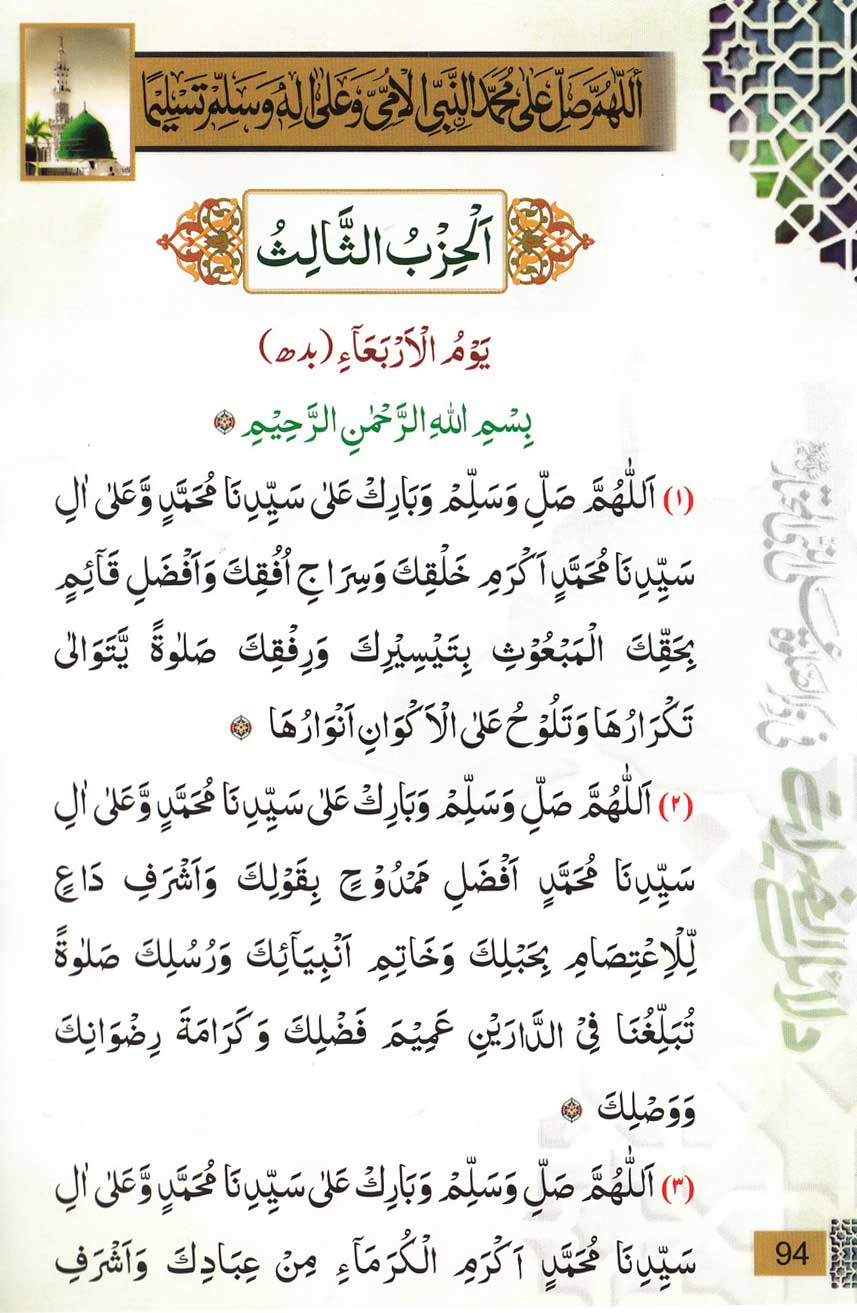 اَللّٰهُمَّ صَلِّ عَلٰى مُحَمَّدِ النَّبِيِّ الْاُمِّيِّ وَعَلٰى اٰلِهٖ وَسَلِّمْ تَسْلِيْمًا
اَلْحِزْبُ الثَّالِثُ
يَوْمُ الْاَرْبَعَآءِ (بدھ)
بِسْمِ اللهِ الرَّحْمٰنِ الرَّحِيْمِ
(١) اَللّٰهُمَّ صَلِّ وَسَلِّمْ وَبَارِكْ عَلٰى سَيِّدِنَا مُحَمَّدٍ وَّعَلٰى اٰلِ
سَيِّدِنَا مُحَمَّدٍ اَكْرَمِ خَلْقِكَ وَسِرَاجِ اُفُقِكَ وَاَفْضَلِ قَآئِمٍ
بِحَقِّكَ الْمَبْعُوْثِ بِتَيْسِيْرِكَ وَرِفْقِكَ صَلٰوةً يَّتَوَالٰى
تَكْرَارُهَا وَتَلُوْحُ عَلَى الْاَكْوَانِ اَنْوَارُهَا
(٢) اَللّٰهُمَّ صَلِّ وَسَلِّمْ وَبَارِكْ عَلٰى سَيِّدِنَا مُحَمَّدٍ وَّعَلٰى اٰلِ
سَيِّدِنَا مُحَمَّدٍ اَفْضَلِ مَمْدُوْحٍ بِقَوْلِكَ وَاَشْرَفِ دَاعٍ
لِّلْاِعْتِصَامِ بِحَبْلِكَ وَخَاتِمِ اَنْبِيَآئِكَ وَرُسُلِكَ صَلٰوةً
تُبَلِّغُنَا فِي الدَّارَيْنِ عَمِيْمَ فَضْلِكَ وَكَرَامَةَ رِضْوَانِكَ
وَوَصْلِكَ
(٣) اَللّٰهُمَّ صَلِّ وَسَلِّمْ وَبَارِكْ عَلٰى سَيِّدِنَا مُحَمَّدٍ وَّعَلٰى اٰلِ
سَيِّدِنَا مُحَمَّدٍ اَكْرَمِ الْكُرَمَآءِ مِنْ عِبَادِكَ وَاَشْرَفِ
دلائل الخیرات
94